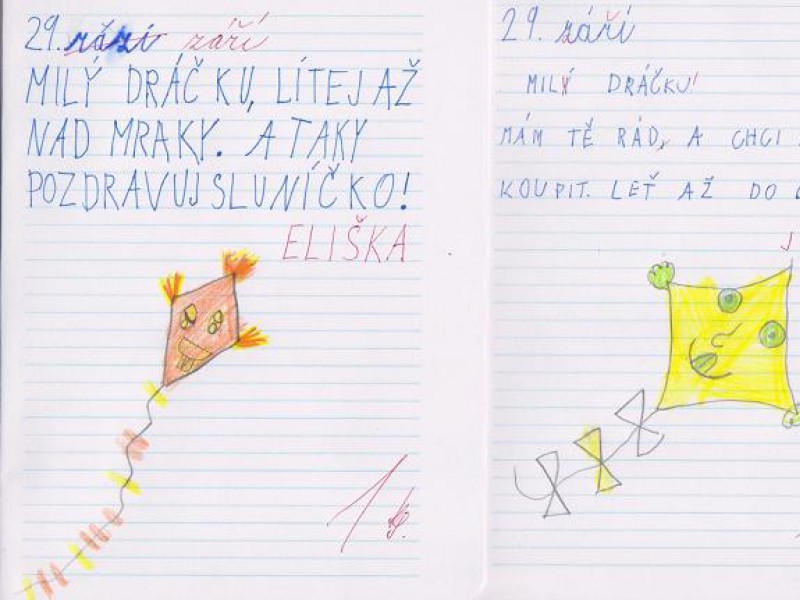 29. září září
MILÝ DRÁČKU, LÍTEJ AŽ
NAD MRAKY. A TAKY
POZDRAVUJ SLUNÍČKO!
ELIŠKA
1
29. září
MILÝ DRÁČKU!
MÁM TĚ RÁD, A CHCI
KOUPIT. LEŤ AŽ DO
J